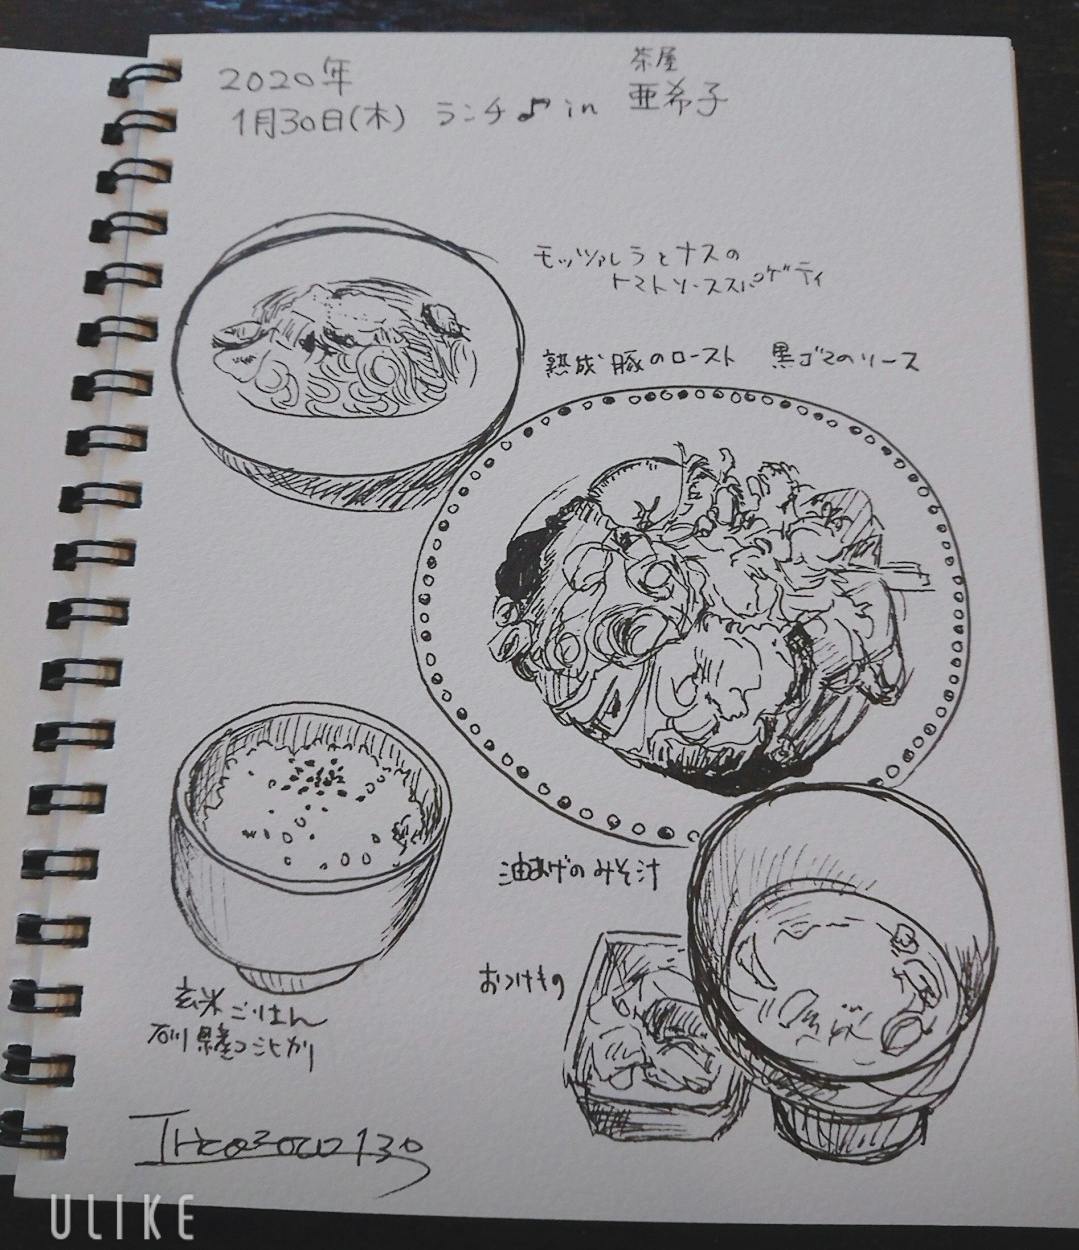 2020年
1月30日(木) ランチ♪ in
茶屋
亜希子
モッツァレラとナスの
トマトソーススパゲティ
熟成豚のロースト 黒ゴマのソース
油あげのみそ汁
おつけもの
玄米ごはん
石川県産コシヒカリ
ULIKE